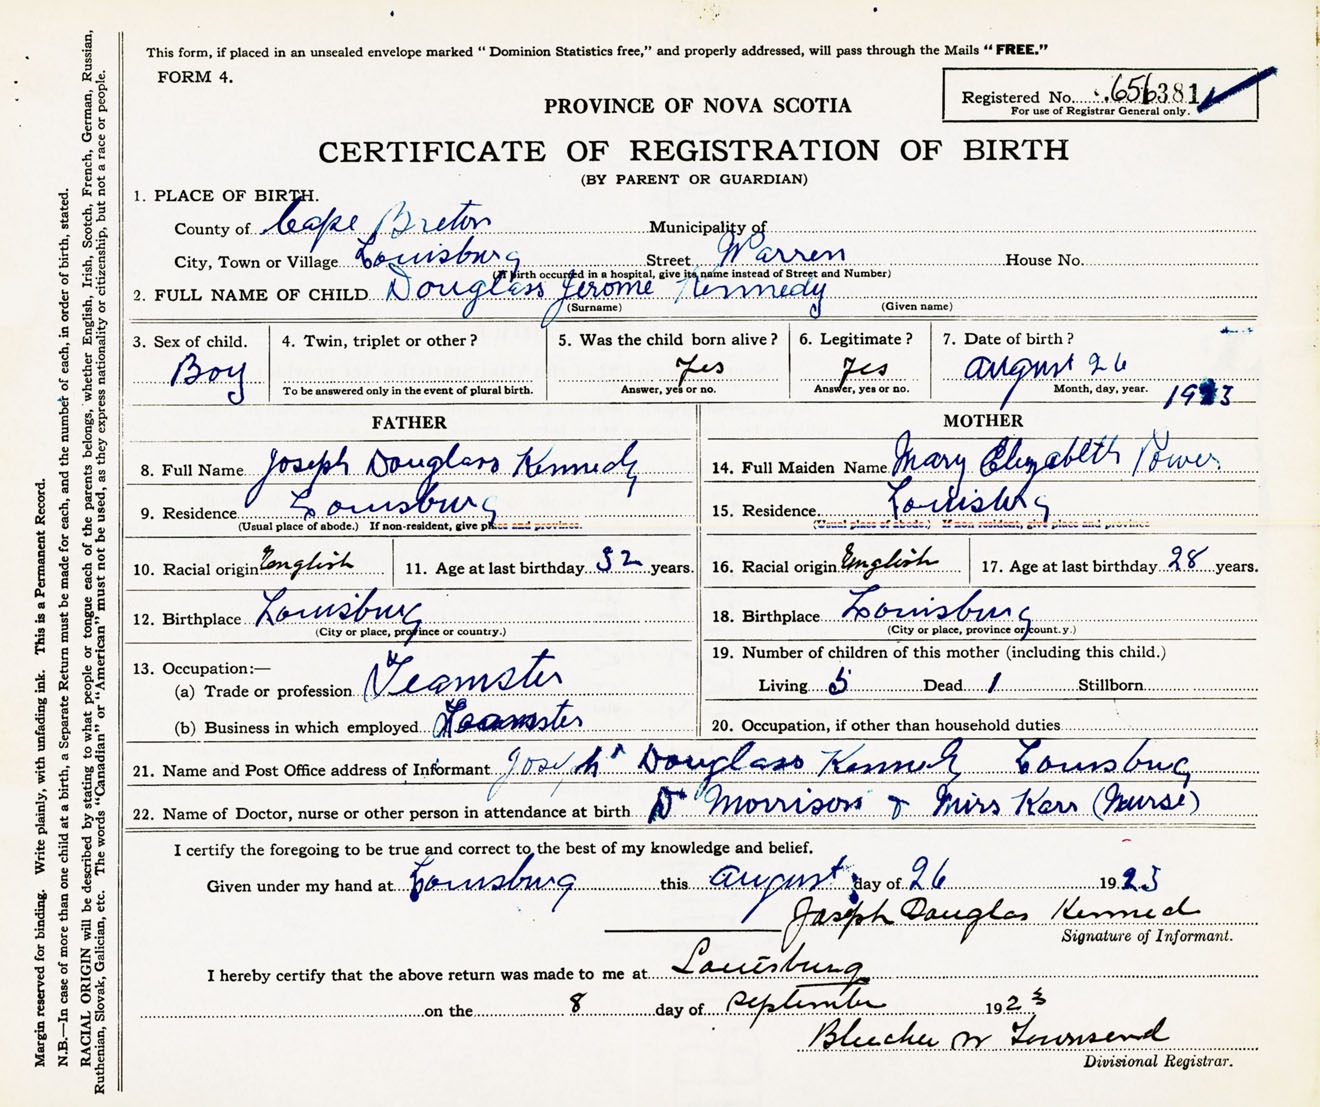 This form, if placed in an unsealed envelope marked “ Dominion Statistics free,” and properly addressed, will pass through the Mails “ FREE.”
FORM 4.
Registered No. 656381
For use of Registrar General only.
PROVINCE OF NOVA SCOTIA
CERTIFICATE OF REGISTRATION OF BIRTH
(BY PARENT OR GUARDIAN)
1. PLACE OF BIRTH.
County of Cape Breton Municipality of
City, Town or Village Louisburg Street Warren House No.
(If birth occurred in a hospital, give its name instead of Street and Number)
2. FULL NAME OF CHILD Douglass Jerome Kennedy
(Surname) (Given name)
3. Sex of child. 4. Twin, triplet or other ? 5. Was the child born alive ? 6. Legitimate ? 7. Date of birth ?
Boy Yes Yes August 26
To be answered only in the event of plural birth. Answer, yes or no. Answer, yes or no. Month, day, year. 1923
FATHER MOTHER
8. Full Name Joseph Douglass Kennedy 14. Full Maiden Name Mary Elizabeth Power
9. Residence Louisburg 15. Residence Louisburg
(Usual place of abode.) If non-resident, give place and province. (Usual place of abode.) If non-resident, give place and province
10. Racial origin English 11. Age at last birthday 32 years. 16. Racial origin English 17. Age at last birthday 28 years.
12. Birthplace Louisburg 18. Birthplace Louisburg
(City or place, province or country.) (City or place, province or count.y.)
13. Occupation:— 19. Number of children of this mother (including this child.)
(a) Trade or profession Teamster Living 5 Dead 1 Stillborn
(b) Business in which employed Teamster 20. Occupation, if other than household duties
21. Name and Post Office address of Informant Joseph Douglass Kennedy Louisburg
22. Name of Doctor, nurse or other person in attendance at birth Dr Morrison & Miss Karr (Nurse)
I certify the foregoing to be true and correct to the best of my knowledge and belief.
Given under my hand at Louisburg this August day of 26 1923
Joseph Douglas Kenned
Signature of Informant.
I hereby certify that the above return was made to me at Louisburg
on the 8 day of September 1923
Bleecher W Townsend
Divisional Registrar.
Margin reserved for binding. Write plainly, with unfading ink. This is a Permanent Record.
N.B.—In case of more than one child at a birth, a Separate Return must be made for each, and the number of each, in order of birth, stated.
RACIAL ORIGIN will be described by stating to what people or tongue each of the parents belongs, whether English, Irish, Scotch, French, German, Russian,
Ruthenian, Slovak, Galician, etc. The words “Canadian” or “American” must not be used, as they express nationality or citizenship, but not a race or people.